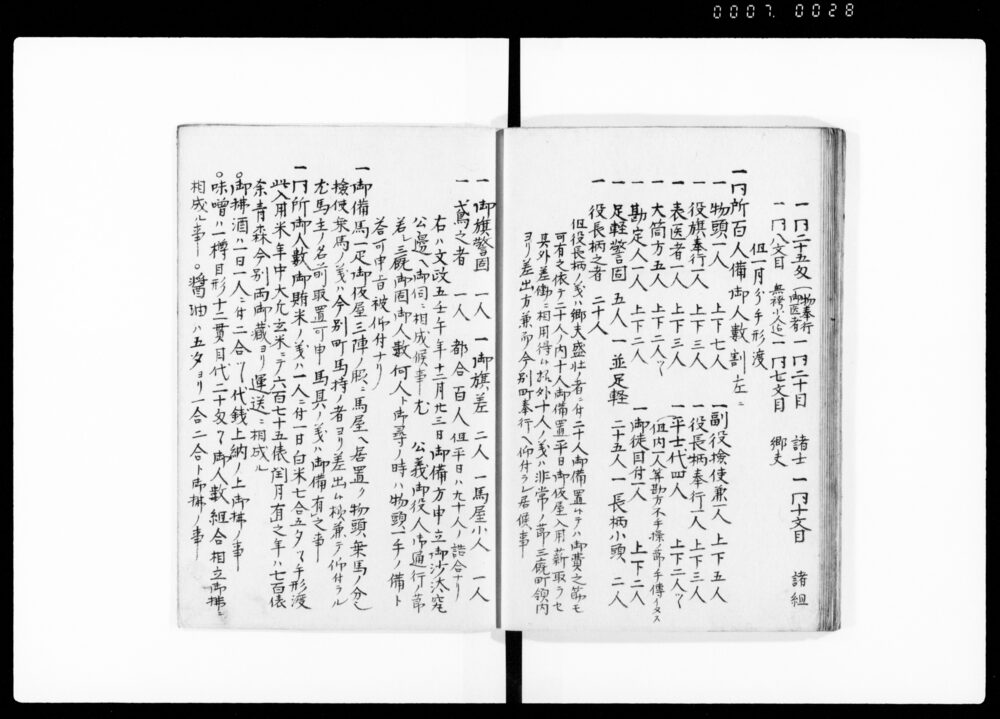 0007 0028
一同二十五匁 物奉行 御医者 一同二十目 諸士 一同十文目 諸組
一同八文目 無役小人迄 一同七文目 郷夫
但一月分手形渡
一同所百人備御人数割左ニ
一物頭一人 上下七人 一副役検使兼一人 上下五人
一役旗奉行一人 上下三人 一役長柄奉行一人 上下三人
一表医者一人 上下三人 一平士代四人 上下二人ツヽ
一大筒方五人 上下二人ツヽ 但内一人算勘方不手操之節手傳イタス
一勘定人一人 上下二人 一御徒目付一人 上下二人
一足軽警固 五人 一並足軽 二十五人 一長柄小頭 二人
一役長柄之者 二十人
但役長柄ノ義ハ郷夫盛壮ノ者ニ付二十人御備置ニテハ御費之筋モ
可有之依テ二十人ノ内十人御備置平日御仮屋入用薪取ラセ
其外差働ニ相用得ハ外十人ノ義ハ非常ノ節三厩町領内
ヨリ差出方兼而今別町奉行ヘ仰付ラレ居候事
一御旗警固 一人 一御旗差 二人 一馬屋小人 一人
一鳶之者 一人 都合百人 但平日ハ九十人ノ詰合ナリ
右ハ文政五壬午年十二月廿三日御備方申立御沙汰窺
公邊ヘ御伺ニ相成候事尤 公義御役人御通行ノ節
若シ三厩御固御人数何人ト御尋ノ時ハ物頭一手ノ備ト
答可申旨被仰付ナリ
一御備馬一疋御仮屋三陣ノ脇ニ馬屋ヘ居置ク物頭乗馬ノ分ニ
検使乗馬ノ義ハ今別町馬持ノ者ヨリ差出シ候様兼テ仰付ラル
尤馬主ノ名前取置可申馬具ノ義ハ御備有之事
一同所御人数御賄米ノ義ハ一人ニ付一日白米七合五夕ツヽ手形渡
此入用米年中大凡玄米ニテ六百七十五俵閏月有之年ハ七百俵
余青森今別両御蔵ヨリ運送ニ相成ル
○御拂酒ハ一日一人ニ付二合ツヽ代銭上納ノ上御拂ノ事
○味噌ハ一樽目形十二貫目代二十匁ツヽ御人数組合相立御拂ニ
相成ル事 ○醤油ハ五夕ヨリ一合二合ト御拂ノ事